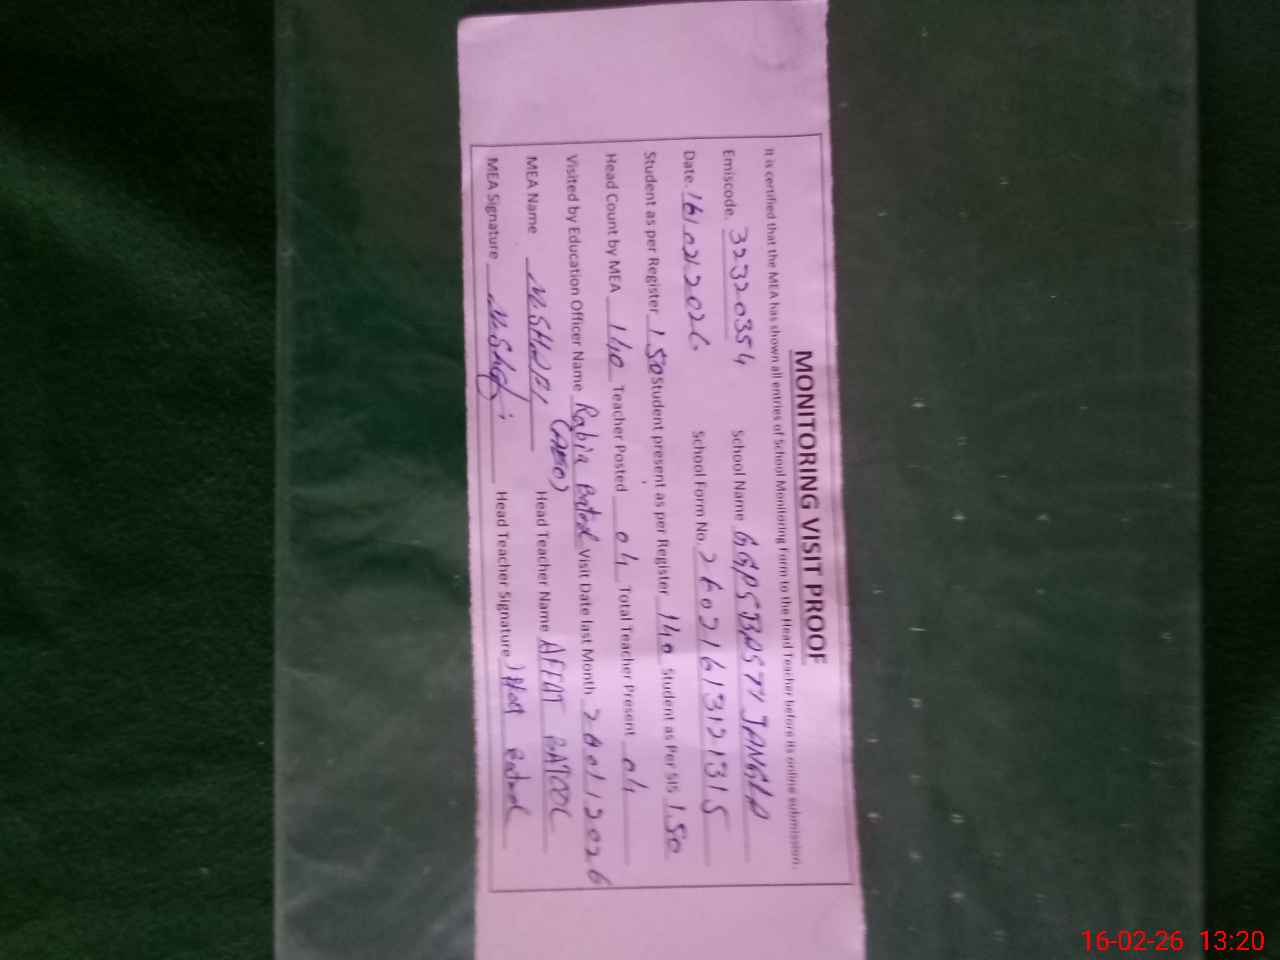 MONITORING VISIT PROOF
It is certified that the MEA has shown all entries of School Monitoring Form to the Head Teacher before its online submission.
Emiscode. 32320354 School Name GGPS BASTI JANGLA
Date. 16/02/2026 School Form No. 26021613121315
Student as per Register 150 Student present as per Register 140 Student as Per SIS 150
Head Count by MEA 140 Teacher Posted 04 Total Teacher Present 04
Visited by Education Officer Name Rabia Batool Visit Date last Month 2026
(AEO)
MEA Name M. SHAFI Head Teacher Name AFFAT BATOOL
MEA Signature M. Shafi Head Teacher Signature Batool
16-02-26 13:20